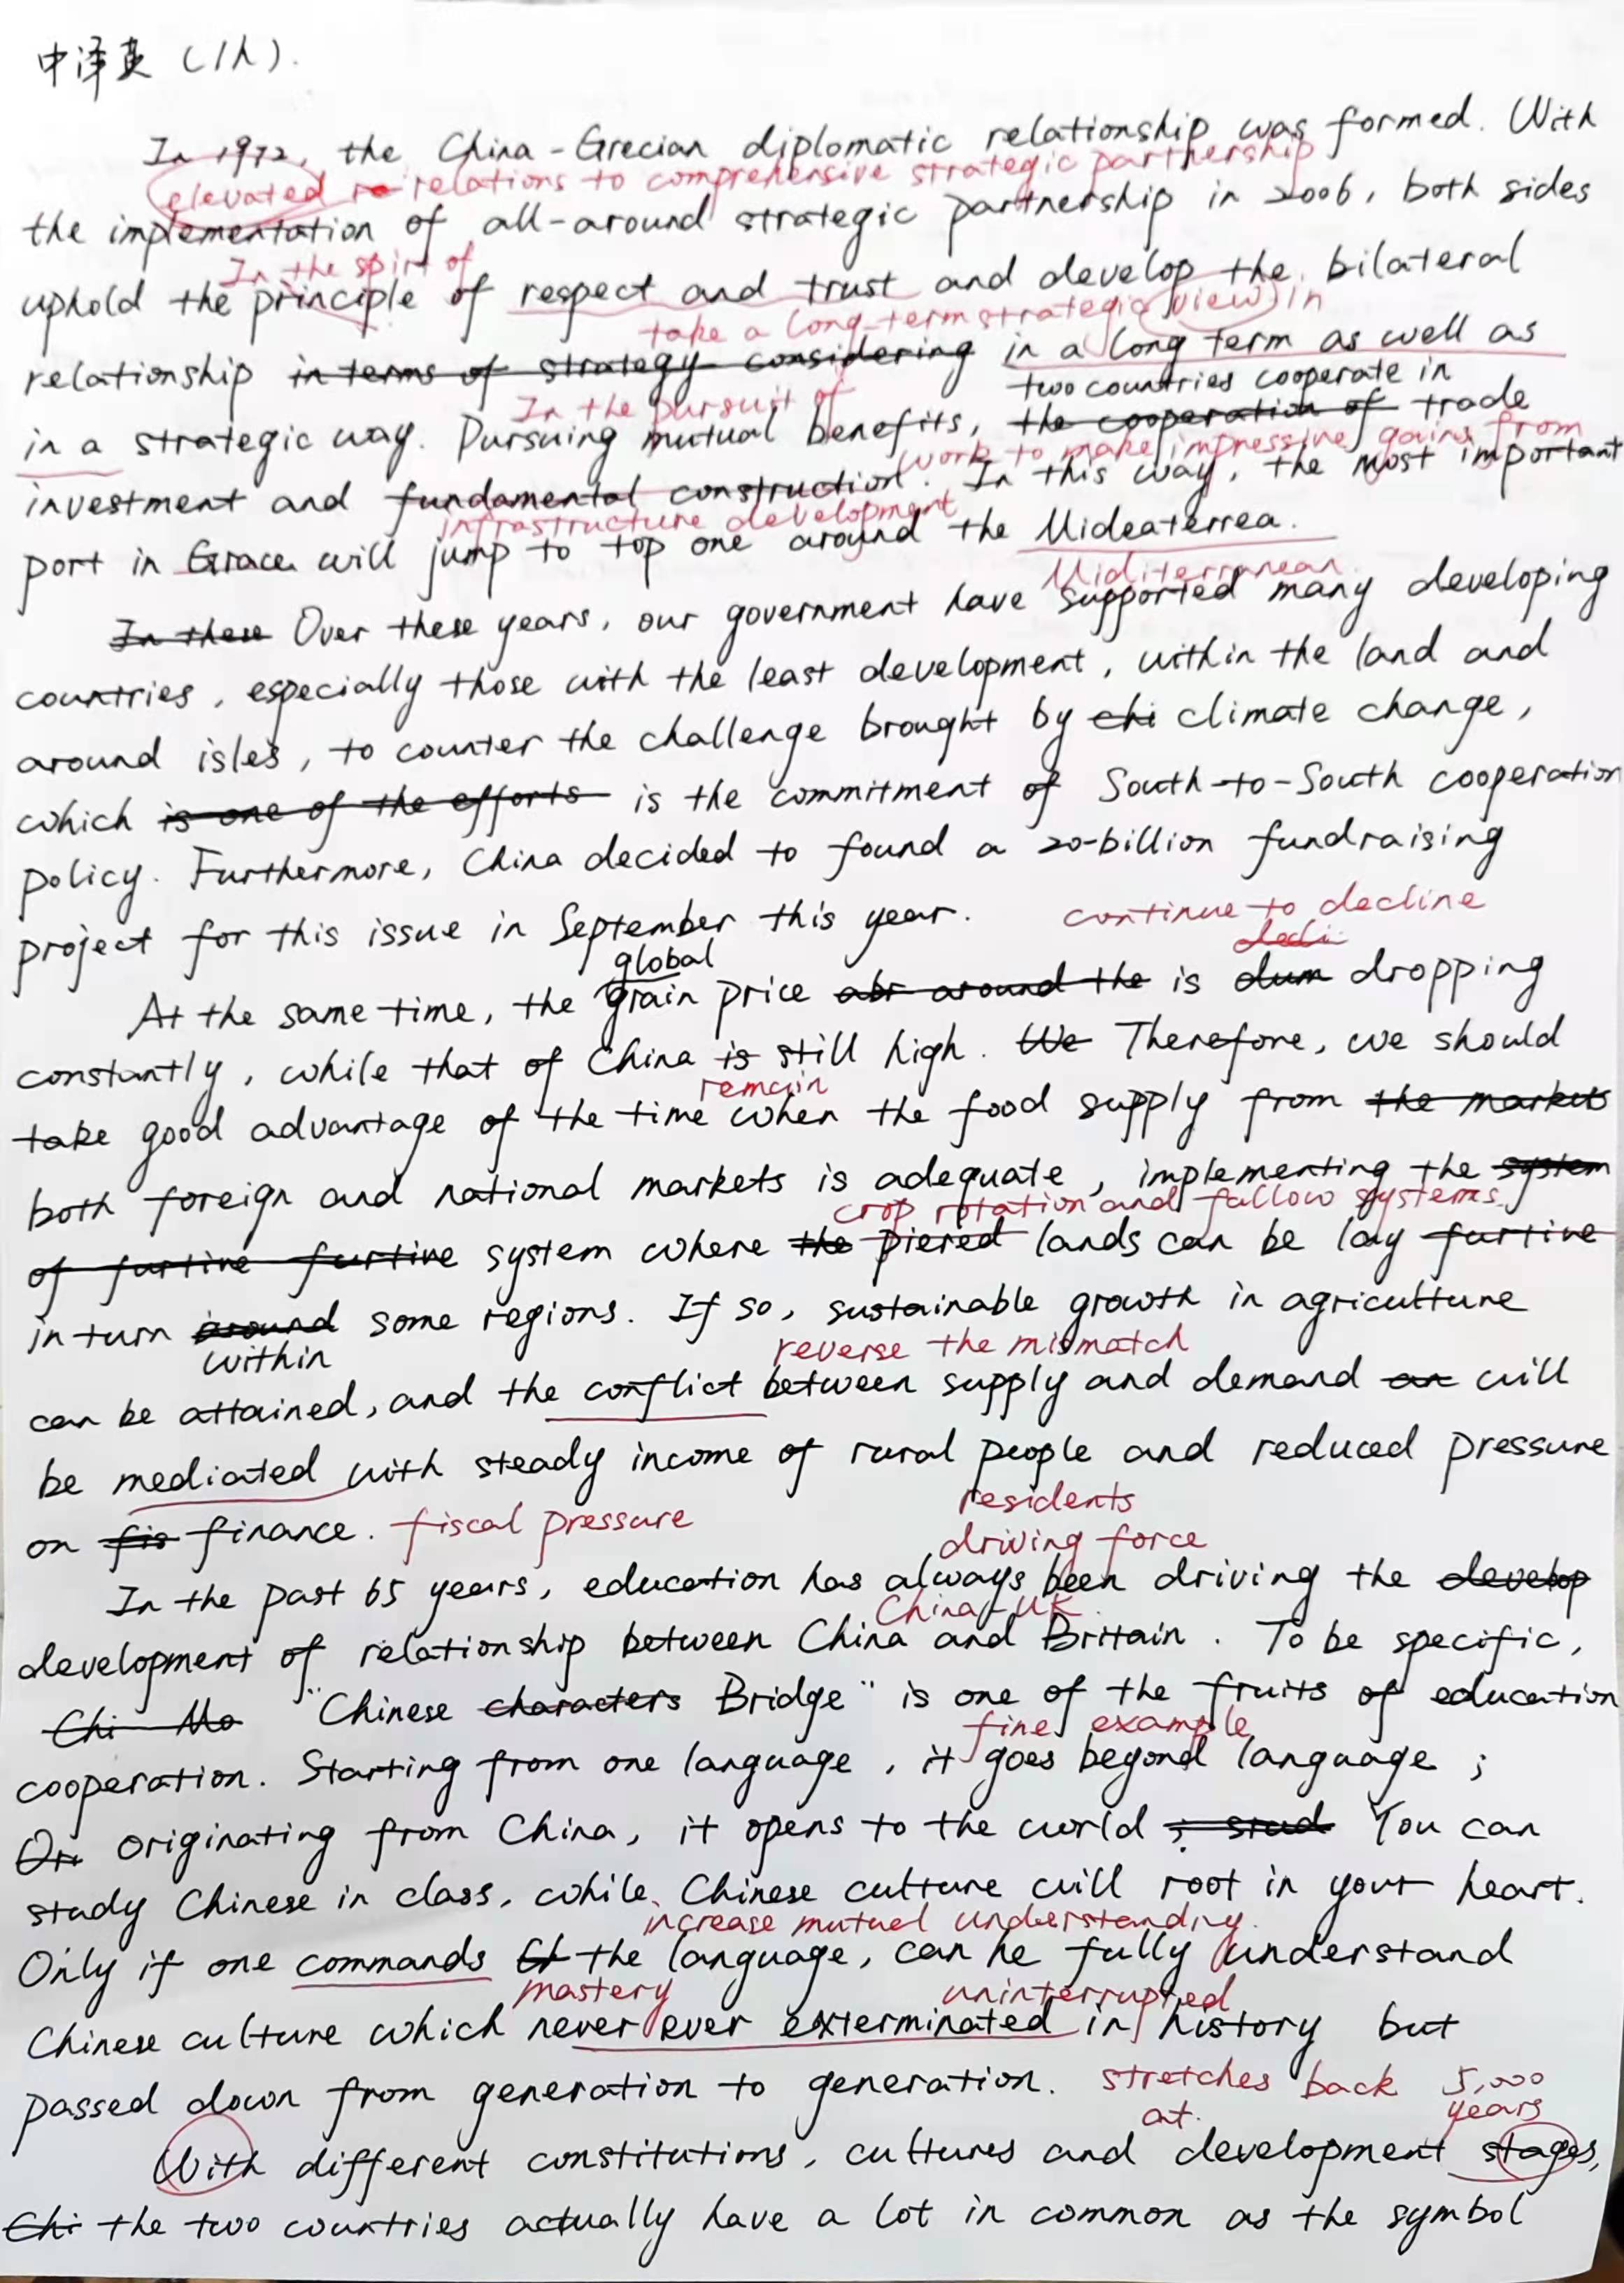 中译英（1h）.
In 1972, the China-Grecian diplomatic relationship was formed. With
elevated re relations to comprehensive strategic partnership
the implementation of all-around strategic partnership in 2006, both sides
In the spirt of
uphold the principle of respect and trust and develop the bilateral
take a long-term strategic view in
relationship in terms of strategy considering in a long term as well as
In the pursuit of
two countries cooperate in
in a strategic way. Pursuing mutual benefits, the cooperation of trade
work to make impressive gains from
investment and fundamental construction. In this way, the most important
infrastructure development
port in Grace will jump to top one around the Mideaterrea.
Miditerranean
In these Over these years, our government have supported many developing
countries, especially those with the least development, within the land and
around isles, to counter the challenge brought by chi climate change,
which is one of the efforts is the commitment of South-to-South cooperation
policy. Furthermore, China decided to found a 20-billion fundraising
project for this issue in September this year.
continue to decline
decli
global
At the same time, the grain price abr around the is dum dropping
constantly, while that of China is still high. We Therefore, we should
remain
take good advantage of the time when the food supply from the markets
both foreign and national markets is adequate, implementing the system
crop rotation and fallow systems
of furtive furtive system where the piered lands can be lay furtive
in turn around some regions. If so, sustainable growth in agriculture
within
reverse the mismatch
can be attained, and the conflict between supply and demand an will
be mediated with steady income of rural people and reduced pressure
residents
on fis finance. fiscal pressure
driving force
In the past 65 years, education has always been driving the develop
China-UK
development of relationship between China and Brittain. To be specific,
Chi Mo "Chinese characters Bridge" is one of the fruits of education
fine example
cooperation. Starting from one language, it goes beyond language;
Ori originating from China, it opens to the world; stud You can
study Chinese in class, while Chinese culture will root in your heart.
increase mutual understanding.
Only if one commands Ch the language, can he fully understand
mastery
uninterrupted
Chinese culture which never ever exterminated in history but
passed down from generation to generation. stretches back 5,000
years
at
With different constitutions, cultures and development stages,
Chi the two countries actually have a lot in common as the symbol